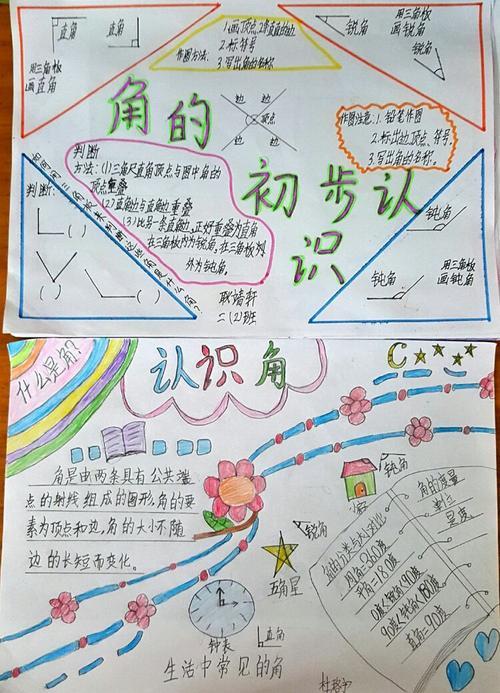 直角
直角
用三角板
画直角
作图方法:
1.画顶点,2条直直的边
2.标符号
3.写出角的名称
锐角
用三角板
画锐角
锐角
角的
初步认
识
边
边
顶点
边
边
作图注意:1.铅笔作图
2.标出边、顶点、符号。
3.写出角的名称。
判断
方法:(1)三角尺直角顶点与图中角的
顶点重叠
(2)直角边与直角边重叠
(3)比另一条直角边,正好重叠为直角
在三角板内为锐角。在三角板外
外为钝角。
判断:
( )
( )
( )
二(2)班
钝角
钝角
用三角板
画钝角
什么是角?
认识角
角是由两条具有公共端
点的射线组成的图形,角的要
素为顶点和边,角的大小不随
边的长短而变化。
锐角
五角星
钟表
直角
生活中常见的角
钝角
家
角的度量
单位
是度
角的分类与大小对比
周角=360度
平角=180度
0度<锐角<90度
90度<钝角<180度
直角=90度